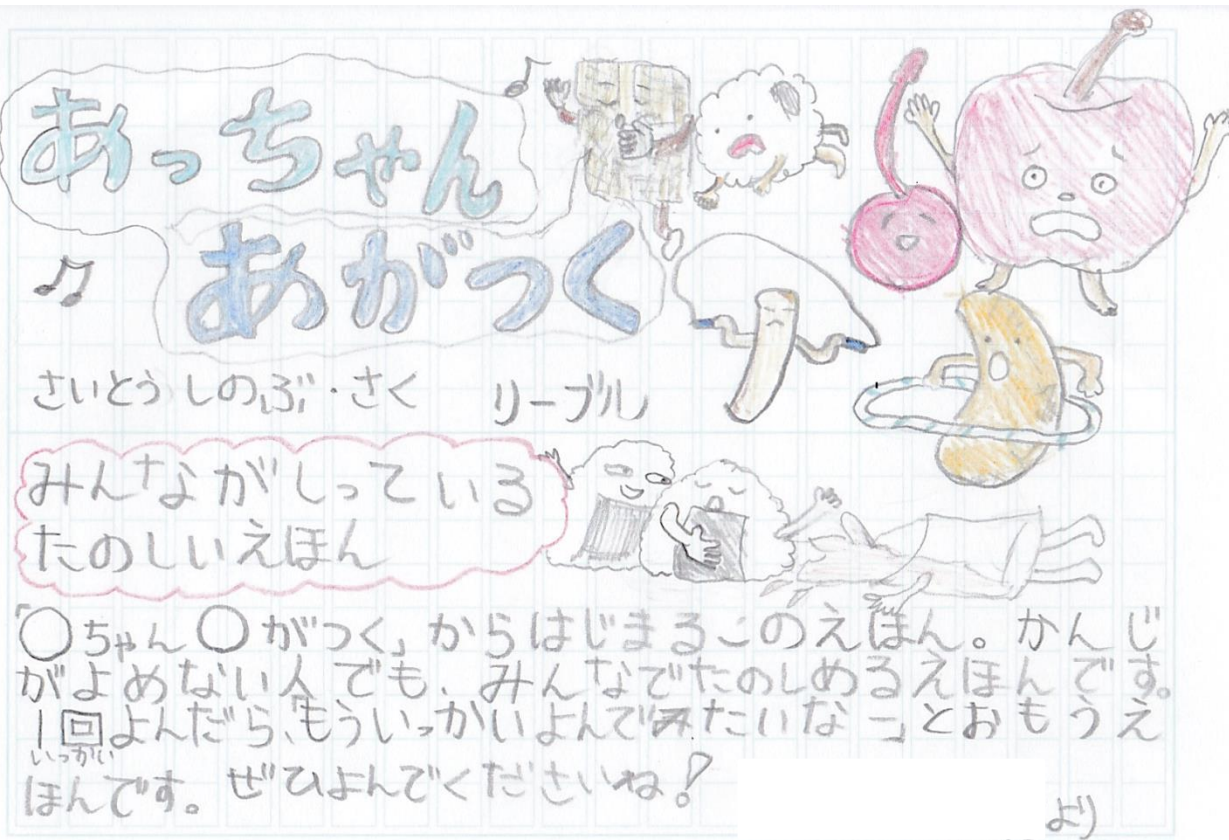 あっちゃん
あがつく
さいとうしのぶ・さく リーブル
みんながしっている
たのしいえほん
「〇ちゃん〇がつく」からはじまるこのえほん。かんじ
がよめない人でも、みんなでたのしめるえほんです。
1回よんだら、「もういっかいよんでみたいなー」とおもうえ
いっかい
ほんです。ぜひよんでくださいね!
より